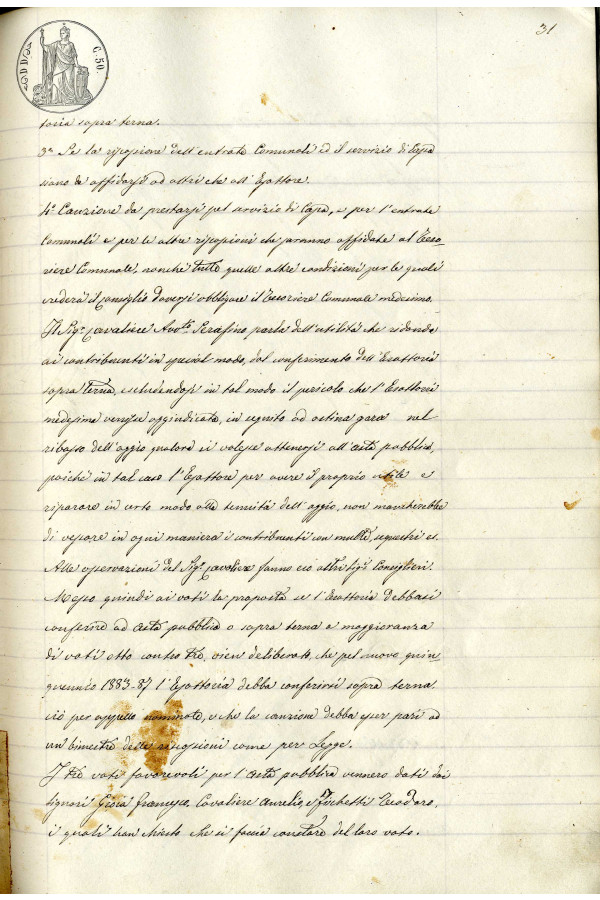 31
C. 50.
toria sopra terna.
3ª Se la riscossione dell'entrate Comunali ed il servizio di Cassa
siano da affidarsi ad altri che all'Esattore.
4ª Cauzione da prestarsi pel servizio di Cassa, e per l'entrate
Comunali e per le altre riscossioni che saranno affidate al Teso-
riere Comunale, nonchè tutte quelle altre condizioni per le quali
crederà il Consiglio doversi obbligare il Tesoriere Comunale medesimo.
Il Sigr Cavaliere Avvto Serafino parla dell'utilità che ridonda
ai contribuenti in special modo, dal conferimento dell'Esattoria
sopra terna, escludendosi in tal modo il pericolo che l'Esattoria
medesima venisse aggiudicata, in seguito ad ostina gara nel
ribasso dell'aggio qualora si volesse attenersi all'asta pubblica,
poichè in tal caso l'Esattore per avere il proprio utile e
riparare in certo modo alla tenuità dell'aggio, non mancherebbe
di vessare in ogni maniera i contribuenti con multe, sequestri ec.
Alle osservazioni del Sigr Cavaliere fanno eco altri Sigri Consiglieri.
Messo quindi ai voti la proposta se l'Esattoria debbasi
conferire ad asta pubblica o sopra terna a maggioranza
di voti otto contro tre, vien deliberato, che pel nuovo quin-
quennio 1883-87 l'Esattoria debba conferirsi sopra terna.
ciò per appello nominale, e che la cauzione debba esser pari ad
un bimestre delle riscossioni come per Legge.
I tre voti favorevoli per l'asta pubblica vennero dati dai
signori Gioia Francesco, Cavaliere Aurelio, e Teodoro,
i quali han chiesto che si faccia constare del loro voto.